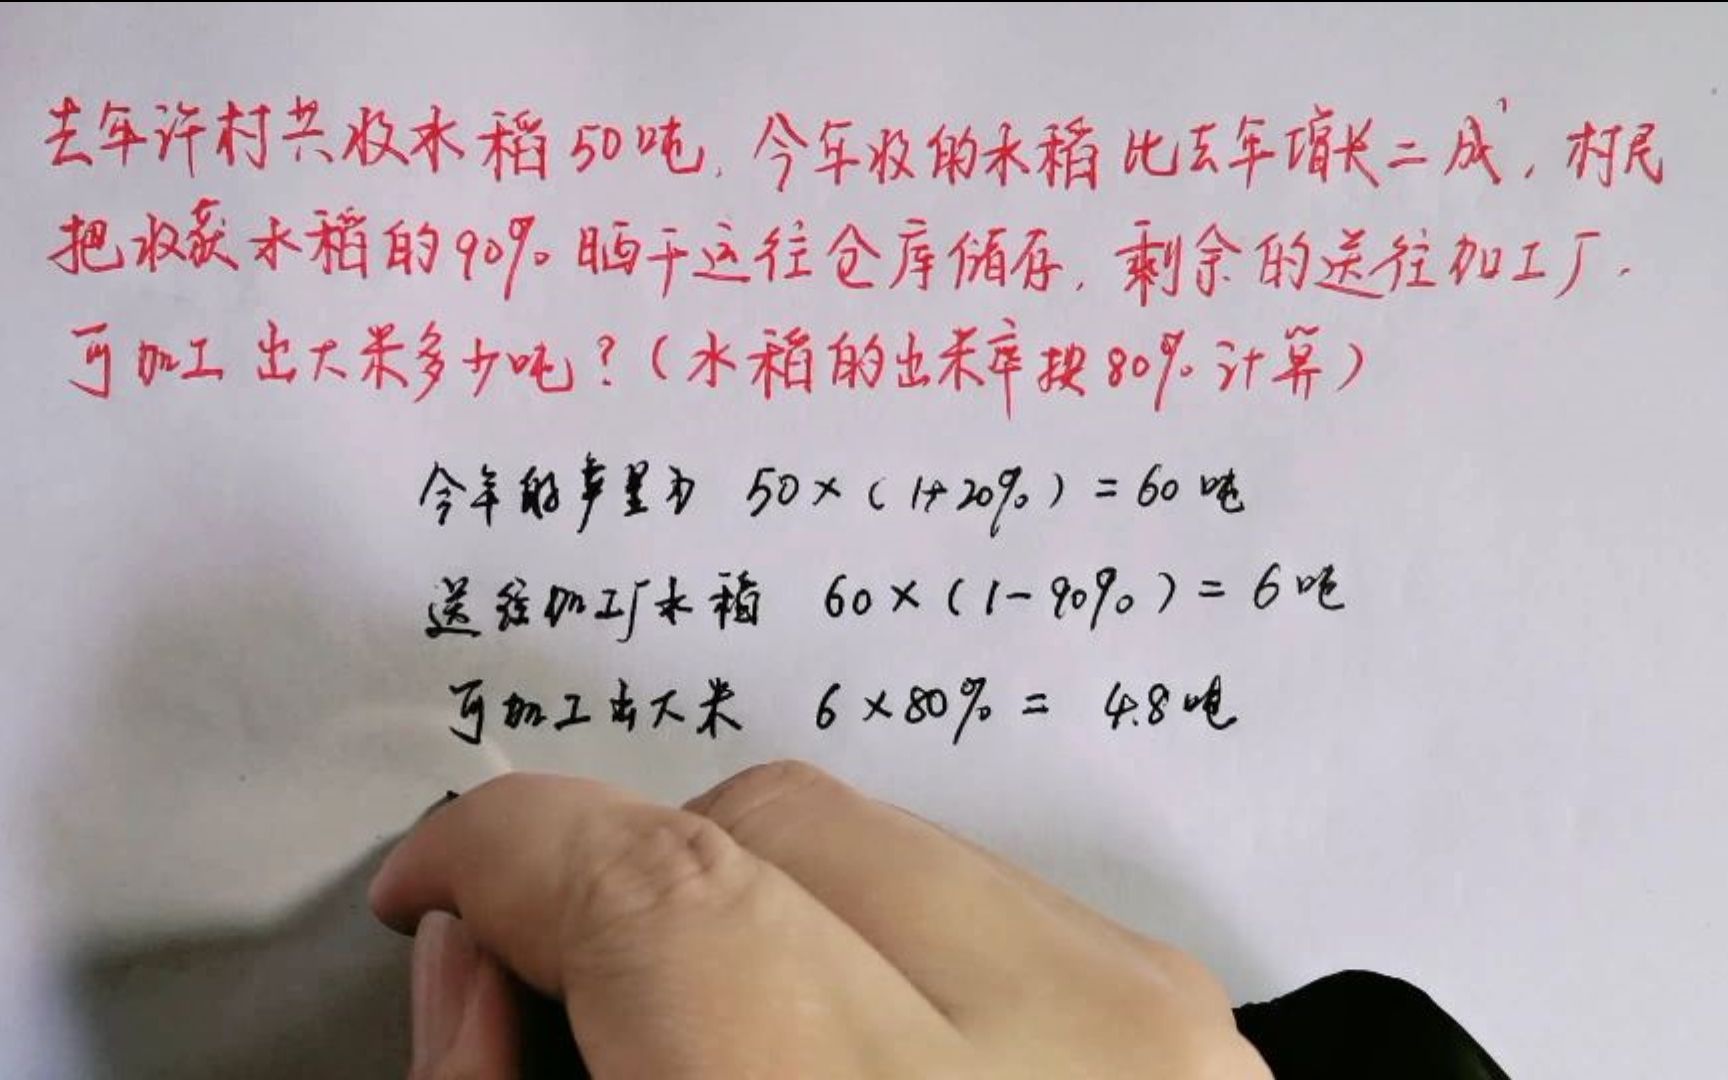 去年许村共收水稻50吨,今年收的水稻比去年增长二成,村民
把收获水稻的90%晒干送往仓库储存,剩余的送往加工厂.
可加工出大米多少吨?(水稻的出米率按80%计算)
今年的产量为 50×(1+20%)=60吨
送往加工厂水稻 60×(1-90%)=6吨
可加工出大米 6×80%= 4.8吨